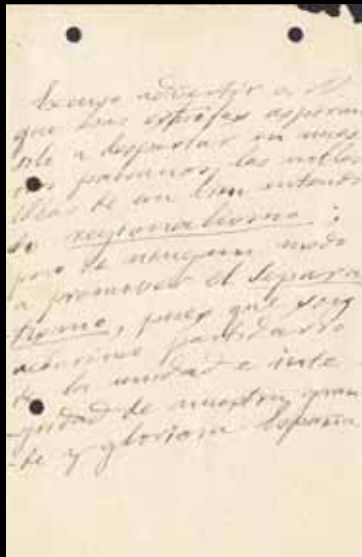 Excuso advertir a V.
que esas estrofas aspiran
sólo a despertar en nues
tros paisanos las nobles
ideas de un bien entendi
do regionalismo;
pero de ningun modo
a promover el separa
tismo, pues que soy
acérrimo partidario
de la unidad e inte-
-gridad de nuestra gran
-de y gloriosa España